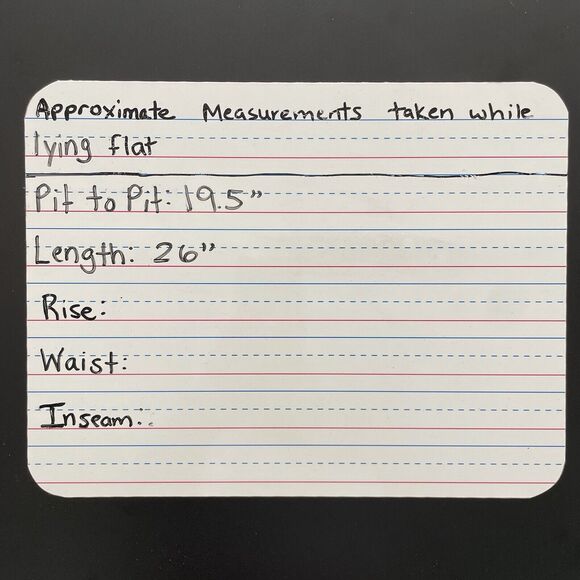 Approximate Measurements taken while
lying flat
Pit to Pit: 19.5"
Length: 26"
Rise:
Waist:
Inseam: